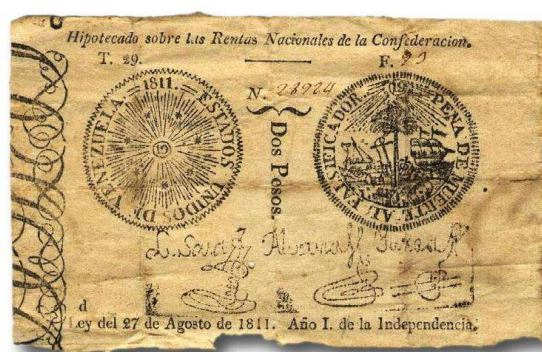 Hipotecado sobre las Rentas Nacionales de la Confederacion.
T. 29.
F. 93
N. 28924
1811. ESTADOS UNIDOS DE VENEZUELA
19
Dos Pesos.
19
PENA DE MUERTE AL FALSIFICADOR.
d
Ley del 27 de Agosto de 1811. Año I. de la Independencia.